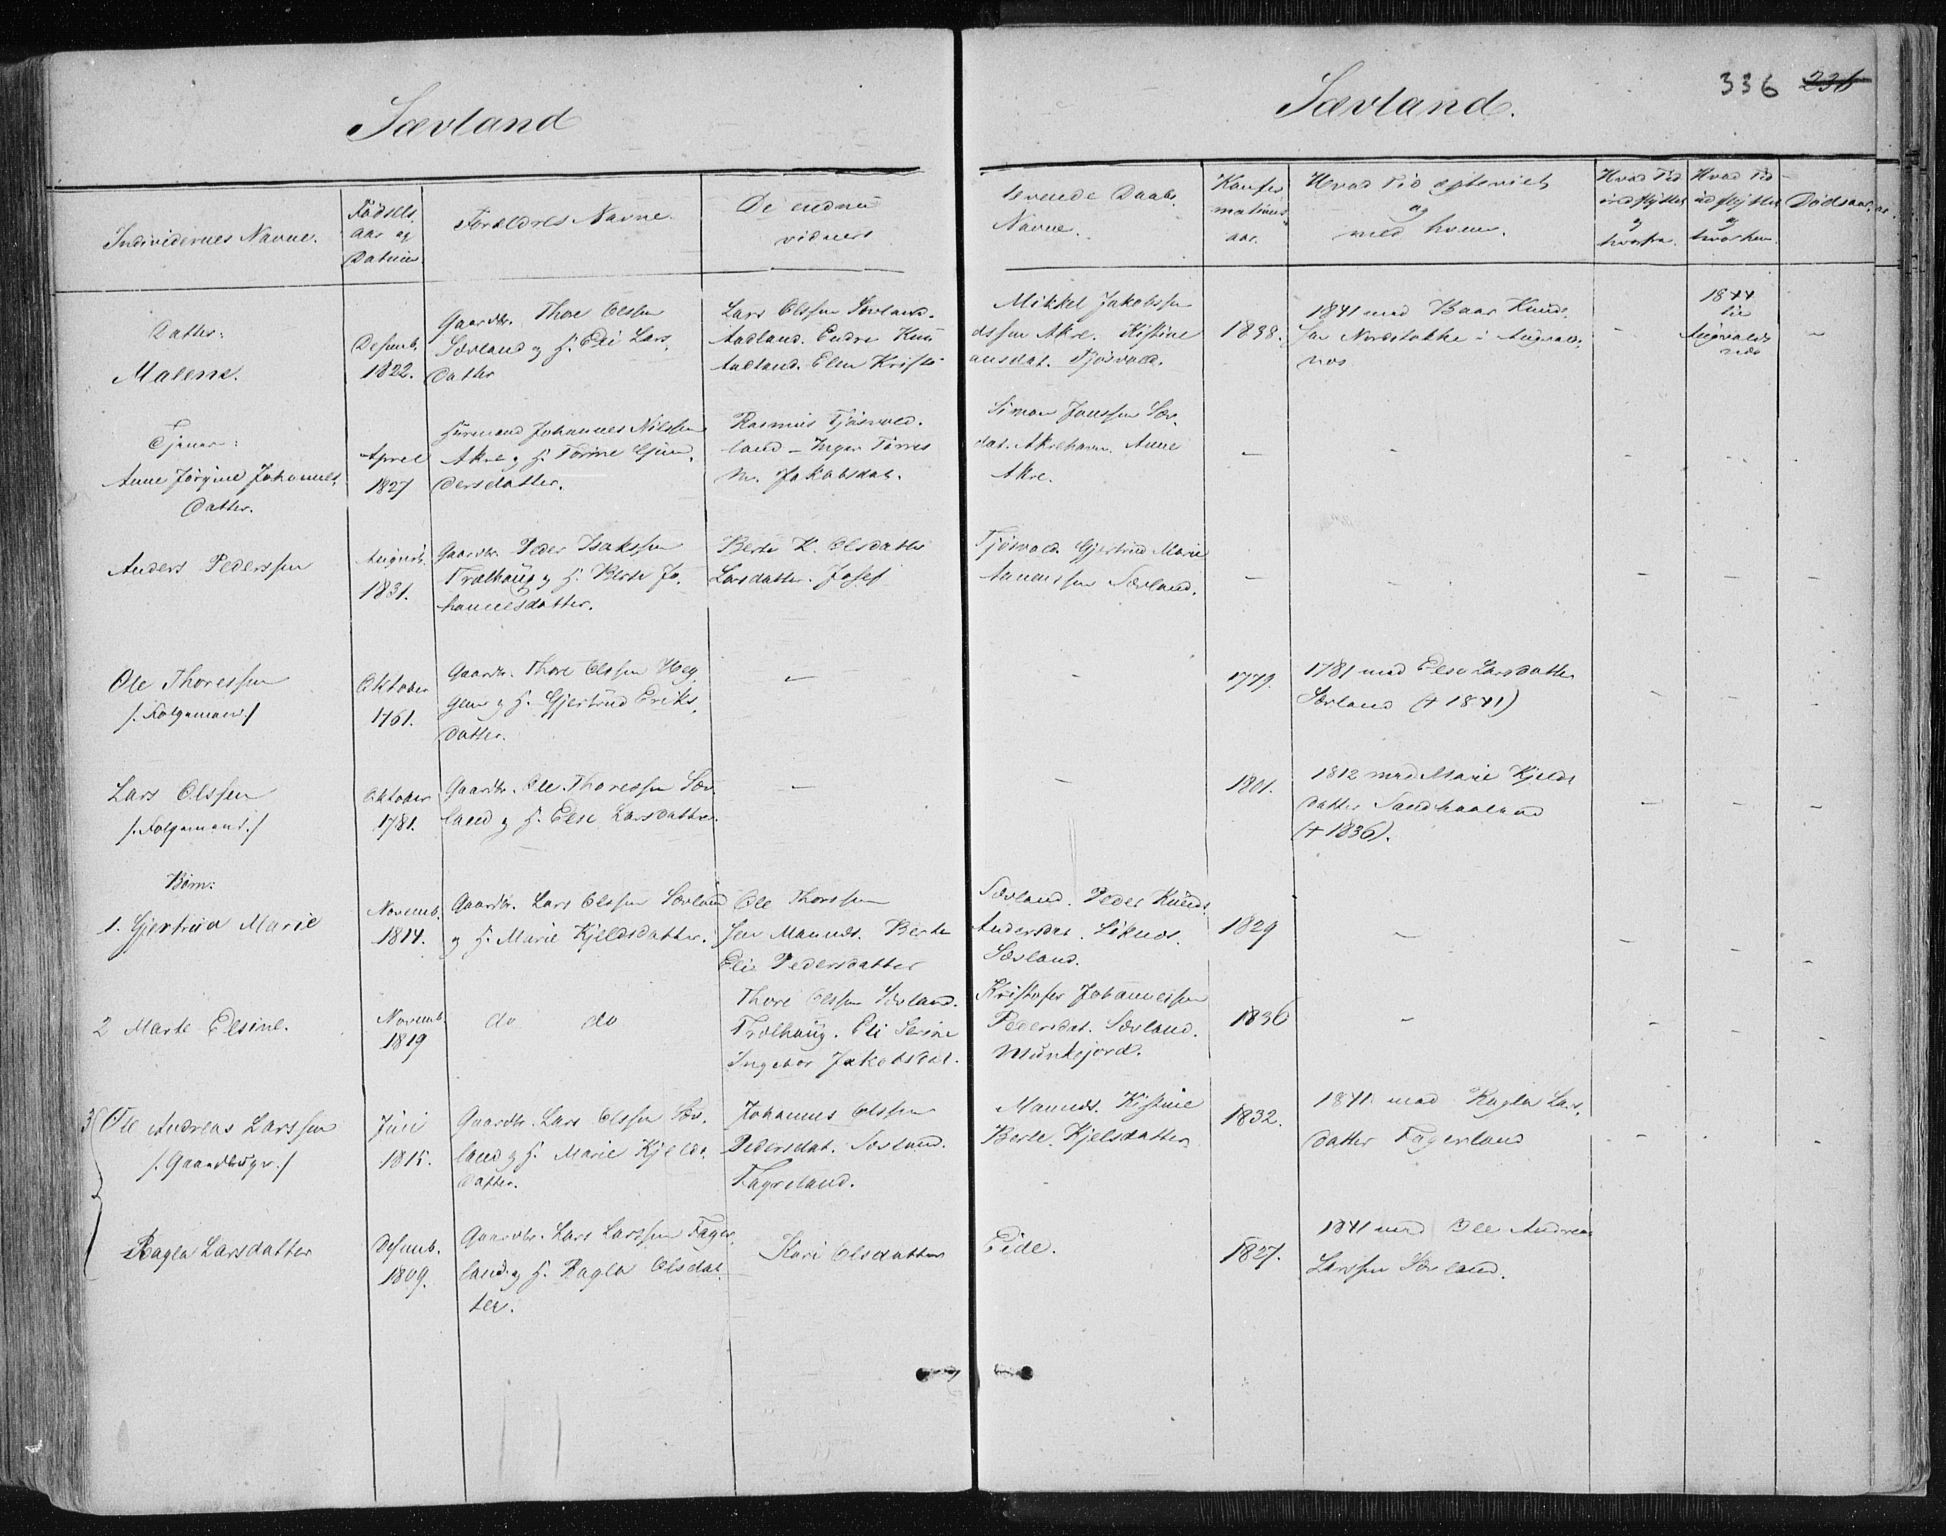 Sævland
Sævland.
336 236
Individernes Navne.
Fødsels
aar og
Datum
Foreldres Navne.
De endnu
vidners
levende Daabs
Navne.
Konfir
mations
aar.
Hvad Tid egteviet
og
med hvem.
Hvad Tid
indflyttet
og
hvorfra.
Hvad Tid
udflyttet
og
hvorhen.
Dødsaar.
Datter:
Malene.
Desemb.
1822.
Gaardbr. Thore Olssen
Sævland og H. Eli Lars
Datter
Lars Olssen Sævland.
Aadland. Endre Knu
Aadland. Elen Kristi
Mikkel Jakobssen
dssen Akre. Kistine
ansdat. Tjøsvold.
1838.
1841 med Baar Knud
sen Nordstokke i Augvalds
nes
1844
til
Augvalds
nes
–
Tjener:
Anne Jørgine Johannes
Datter.
April
1827
Huusmand Johannes Nilssen
Akre og H. Torine Gun
dersdatter.
Rasmus Tjøsvold.
land – Inger Tørres
M. Jakobsdat.
Simon Jonssen Sæv
dat. Akrehavn. Anne
Akre.
–
Anders Pederssen
August
1831.
Gaardbr. Peder Isakssen
Trælhaug og H. Berte Jo
hannesdatter.
Berte K. Olsdatter
Larsdatter. Josef
Tjøsvold Gjertrud Marie
Aanenssen Sævland.
–
Ole Thoressen
/: Folgemand :/
Oktober
1761.
Gaardbr. Thore Olssen Heg
gem og H. Gjertrud Eriks
Datter.
–
1779.
1781 med Else Larsdatter
Sævland (+ 1841)
Lars Olssen
/: Folgemand :/
Oktober
1781.
Gaardbr. Ole Thoressen Sæv
land og H. Else Larsdatter.
–
1801.
1812 med Marie Kjelds
datter Sandhaaland
(+ 1836).
Børn:
1. Gjertrud Marie
Novemb.
1814.
Gaardbr. Lars Olssen Sævland
og H. Marie Kjeldsdatter.
Ole Thorssen
sen Mannds. Berte
Eli Pedersdatter
Sævland. Peder Knud
Andersdat. Liknes.
Sævland.
1829
–
2 Marte Elsine.
Novemb.
1819
do do
Thore Olssen Sævland.
Trælhaug. Eli Serine
Ingebor Jakobsdat.
Kristofer Johannessen
Pedersdat. Sævland.
Munkejord.
1836
–
3 Ole Andreas Larssen
/: Gaardbruger :/
Juli
1815.
Gaardbr. Lars Olssen Sæv
land og H. Marie Kjelds
datter.
Johannes Olssen
Pedersdat. Sævland.
Fagreland.
Mannds. Kistine
Berte Kjelsdatter
1832.
1841 med Ragla Lars
datter Fagerland
Ragla Larsdatter
Desemb.
1809.
Gaardbr. Lars Larssen Fager
land og H. Ragla Olsdat
ter.
Kari Olsdatter
Eide.
1827.
1841 med Ole Andreas
Larssen Sævland.